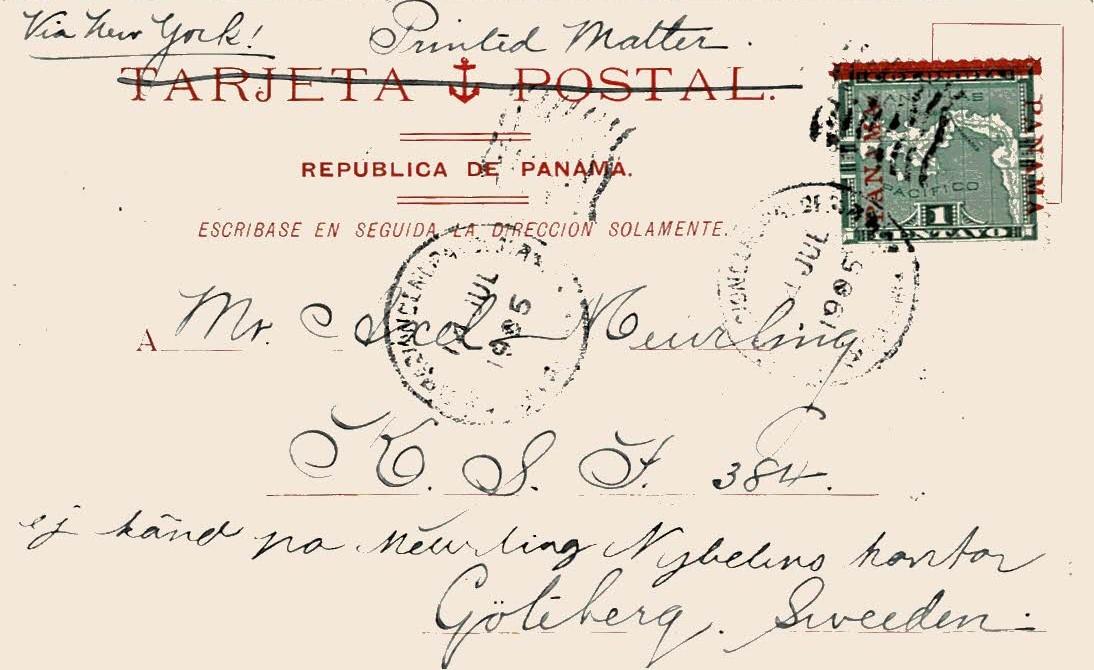 Via New York! Printed Matter.
TARJETA POSTAL.
REPUBLICA DE PANAMA.
ESCRIBASE EN SEGUIDA LA DIRECCION SOLAMENTE.
PANAMA
PANAMA
PACIFICO
1
CENTAVO
JUL
1905
JUL
1905
A Mr. Axel Meurling
K. S. F. 384.
ej känd på Meurling Nybelins kontor
Göteberg. Sweeden.